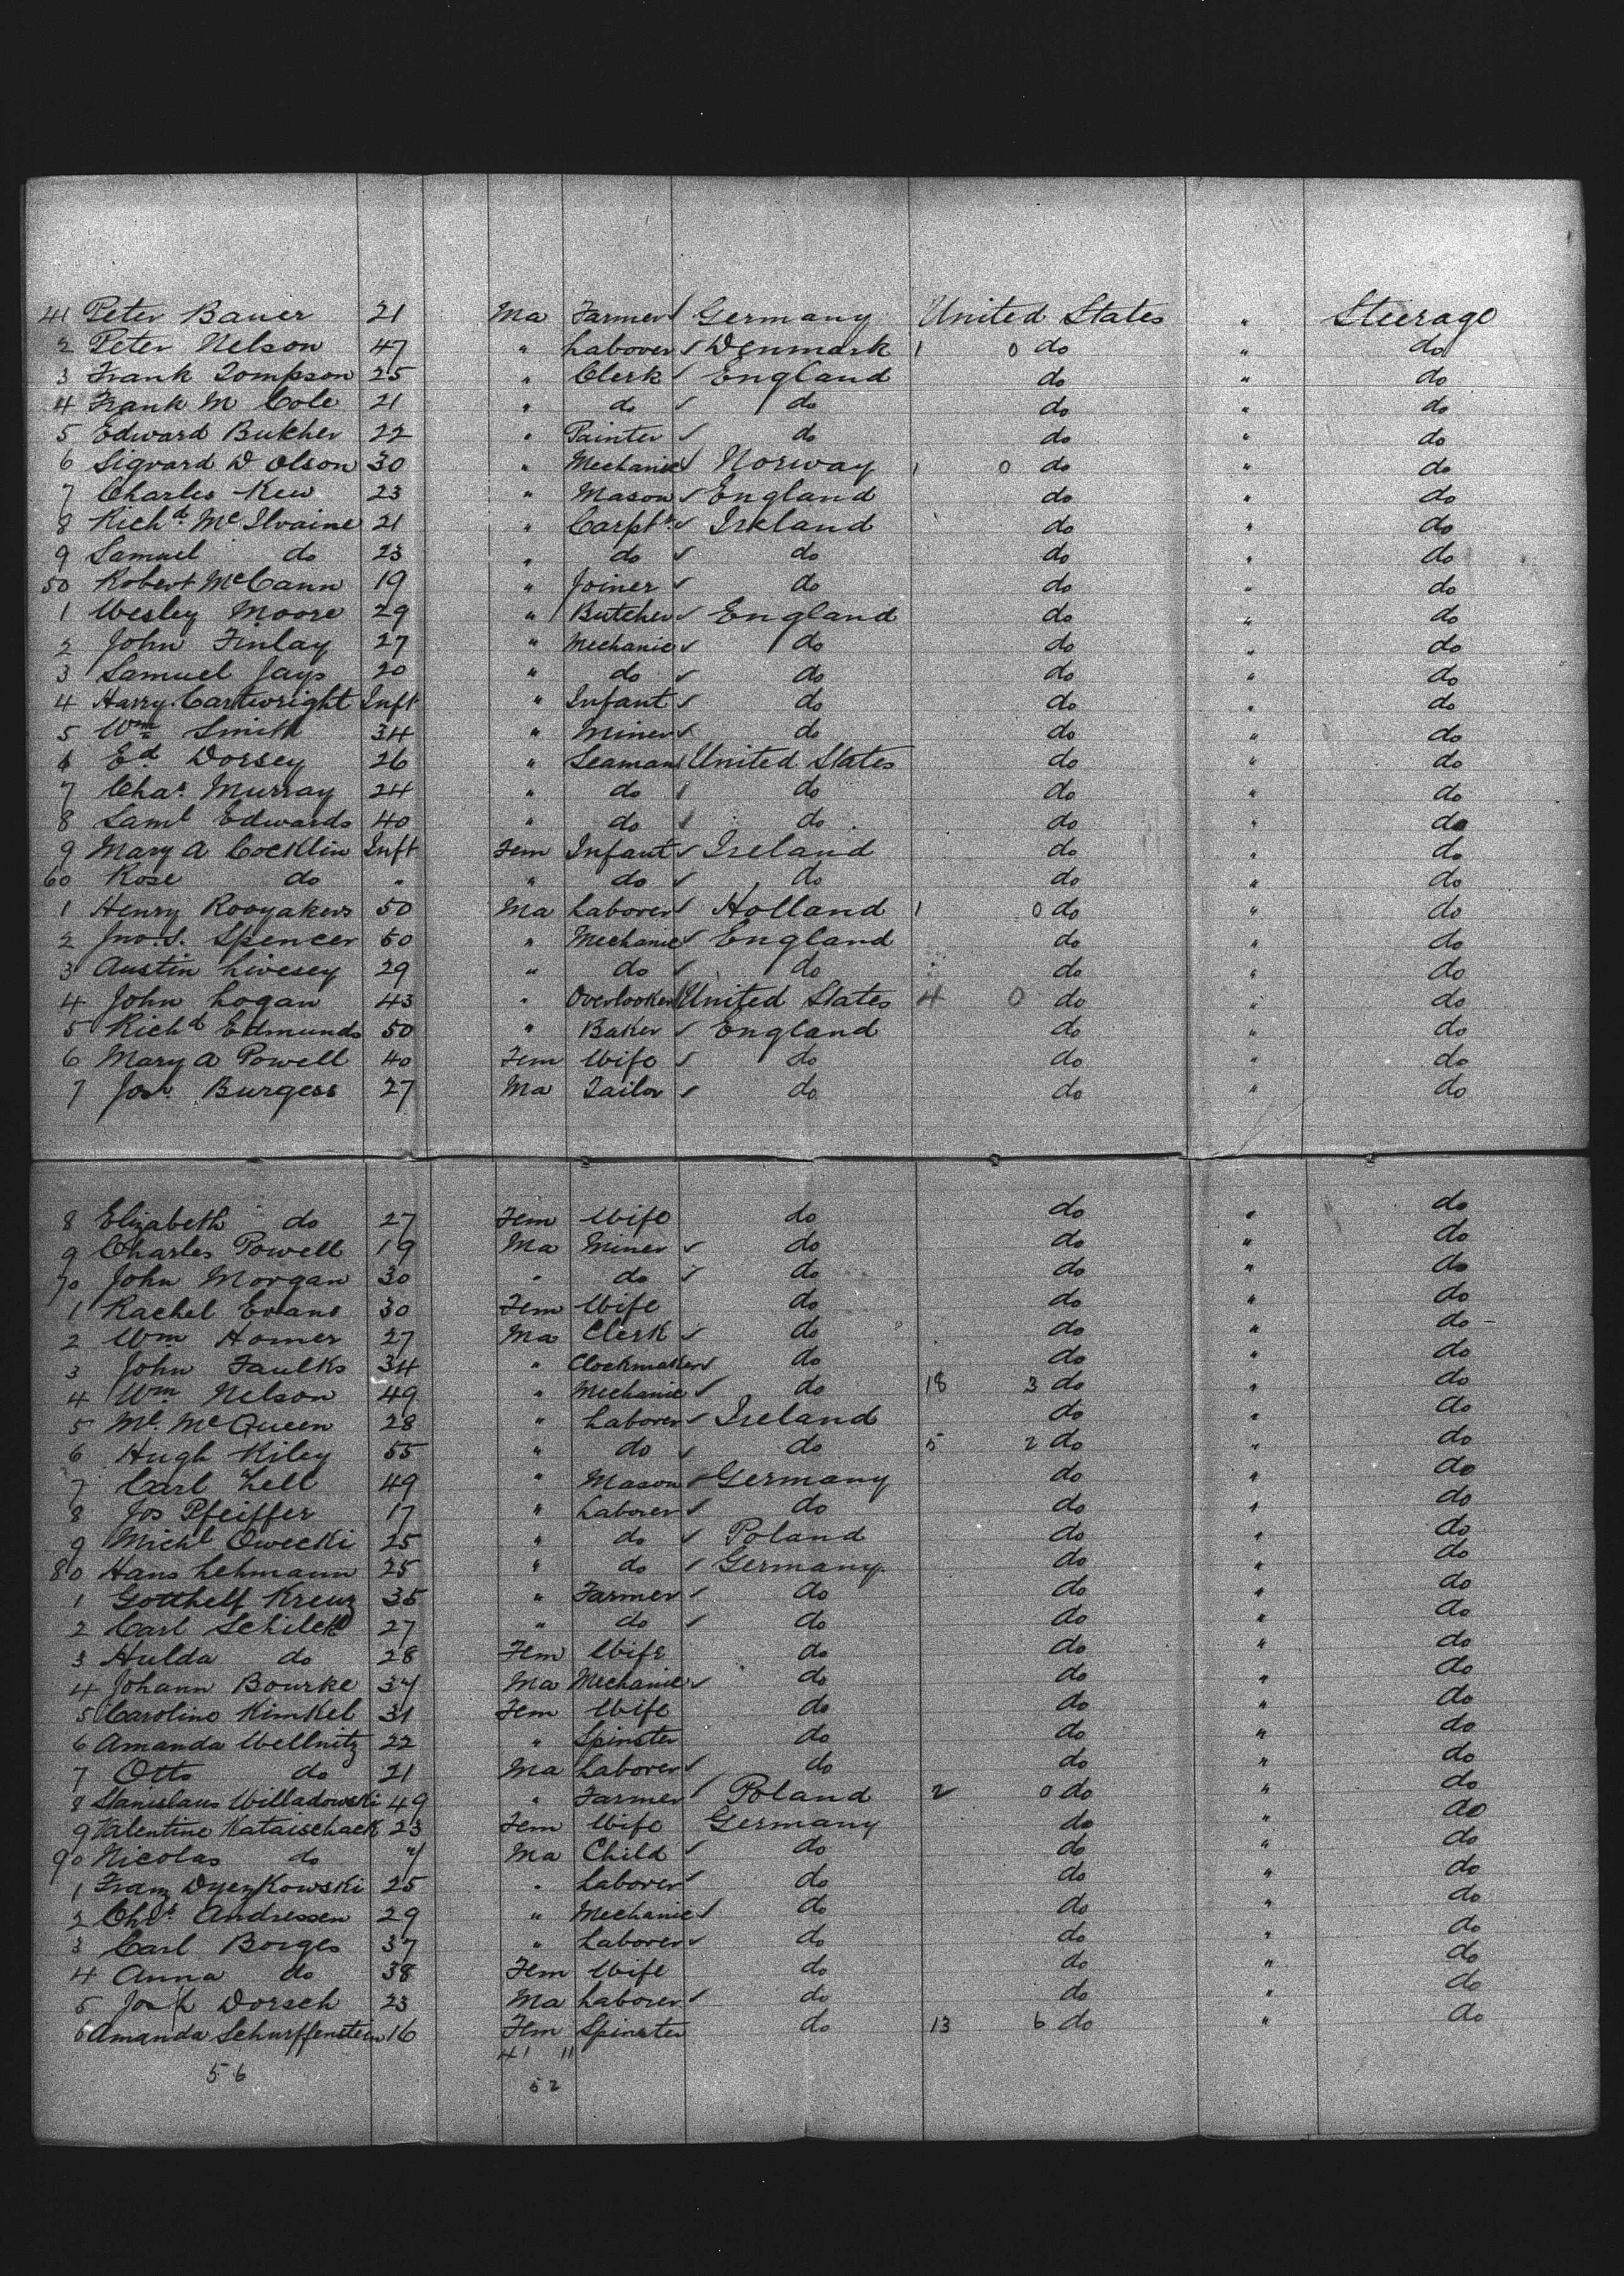 41 Peter Bauer 21 Ma Farmer Germany United States " Steerage
2 Peter Nelson 47 " Laborer Denmark 1 0 do " do
3 Frank Tompson 25 " Clerk England do " do
4 Frank M Cole 21 " do do do " do
5 Edward Butcher 22 " Painter do do " do
6 Sigvard D Olson 30 " Mechanic Norway 1 0 do " do
7 Charles Kew 23 " Mason England do " do
8 Richd McIlvaine 21 " Carptr Ireland do " do
9 Samuel do 23 " do do do " do
50 Robert McCann 19 " Joiner do do " do
1 Wesley Moore 29 " Butcher England do " do
2 John Finlay 27 " Mechanic do do " do
3 Samuel Jays 20 " do do do " do
4 Harry Cartwright Inft " Infant do do " do
5 Wm Smith 34 " Miner do do " do
6 Ed Dorsey 26 " Seaman United States do " do
7 Chas Murray 24 " do do do " do
8 Saml Edwards 40 " do do do " do
9 Mary A Cocklin Inft Fem Infant Ireland do " do
60 Rose do " " do do do " do
1 Henry Rooyakers 50 Ma Laborer Holland 1 0 do " do
2 Jno. S. Spencer 50 " Mechanic England do " do
3 Austin Livesey 29 " do do do " do
4 John Logan 43 " Overlooker United States 4 0 do " do
5 Richd Edmunds 50 " Baker England do " do
6 Mary A Powell 40 Fem Wife do do " do
7 Josh Burgess 27 Ma Tailor do do " do
8 Elizabeth do 27 Fem Wife do do " do
9 Charles Powell 19 Ma Miner do do " do
70 John Morgan 30 " do do do " do
1 Rachel Evans 30 Fem Wife do do " do
2 Wm Homer 27 Ma Clerk do do " do
3 John Faulks 34 " Clockmaker do do " do
4 Wm Nelson 49 " Mechanic do 18 3 do " do
5 Ml McQueen 28 " Laborer Ireland do " do
6 Hugh Kiley 55 " do do 5 2 do " do
7 Carl Zell 49 " Mason Germany do " do
8 Jos Pfeiffer 17 " Laborer do do " do
9 Michl Owecki 25 " do Poland do " do
80 Hans Lehmann 25 " do Germany do " do
1 Gotthelf Kreuz 35 " Farmer do do " do
2 Carl Schilek 27 " do do do " do
3 Hulda do 28 Fem Wife do do " do
4 Johann Bourke 37 Ma Mechanic do do " do
5 Caroline Kimkel 31 Fem Wife do do " do
6 Amanda Wellnitz 22 " Spinster do do " do
7 Otto do 21 Ma Laborer do do " do
8 Stanislaus Willadowski 49 " Farmer Poland 2 0 do " do
9 Valentine Kataischack 23 Fem Wife Germany do " do
90 Nicolas do Ma Child do do " do
1 Franz Dyezkowski 25 " Laborer do do " do
2 Chrs Andressen 29 " Mechanic do do " do
3 Carl Borges 37 " Laborer do do " do
4 Anna do 38 Fem Wife do do " do
5 Josh Dorsch 23 Ma Laborer do do " do
6 Amanda Schurffenstein 16 Fem Spinster do 13 6 do " do
41 11
56
52